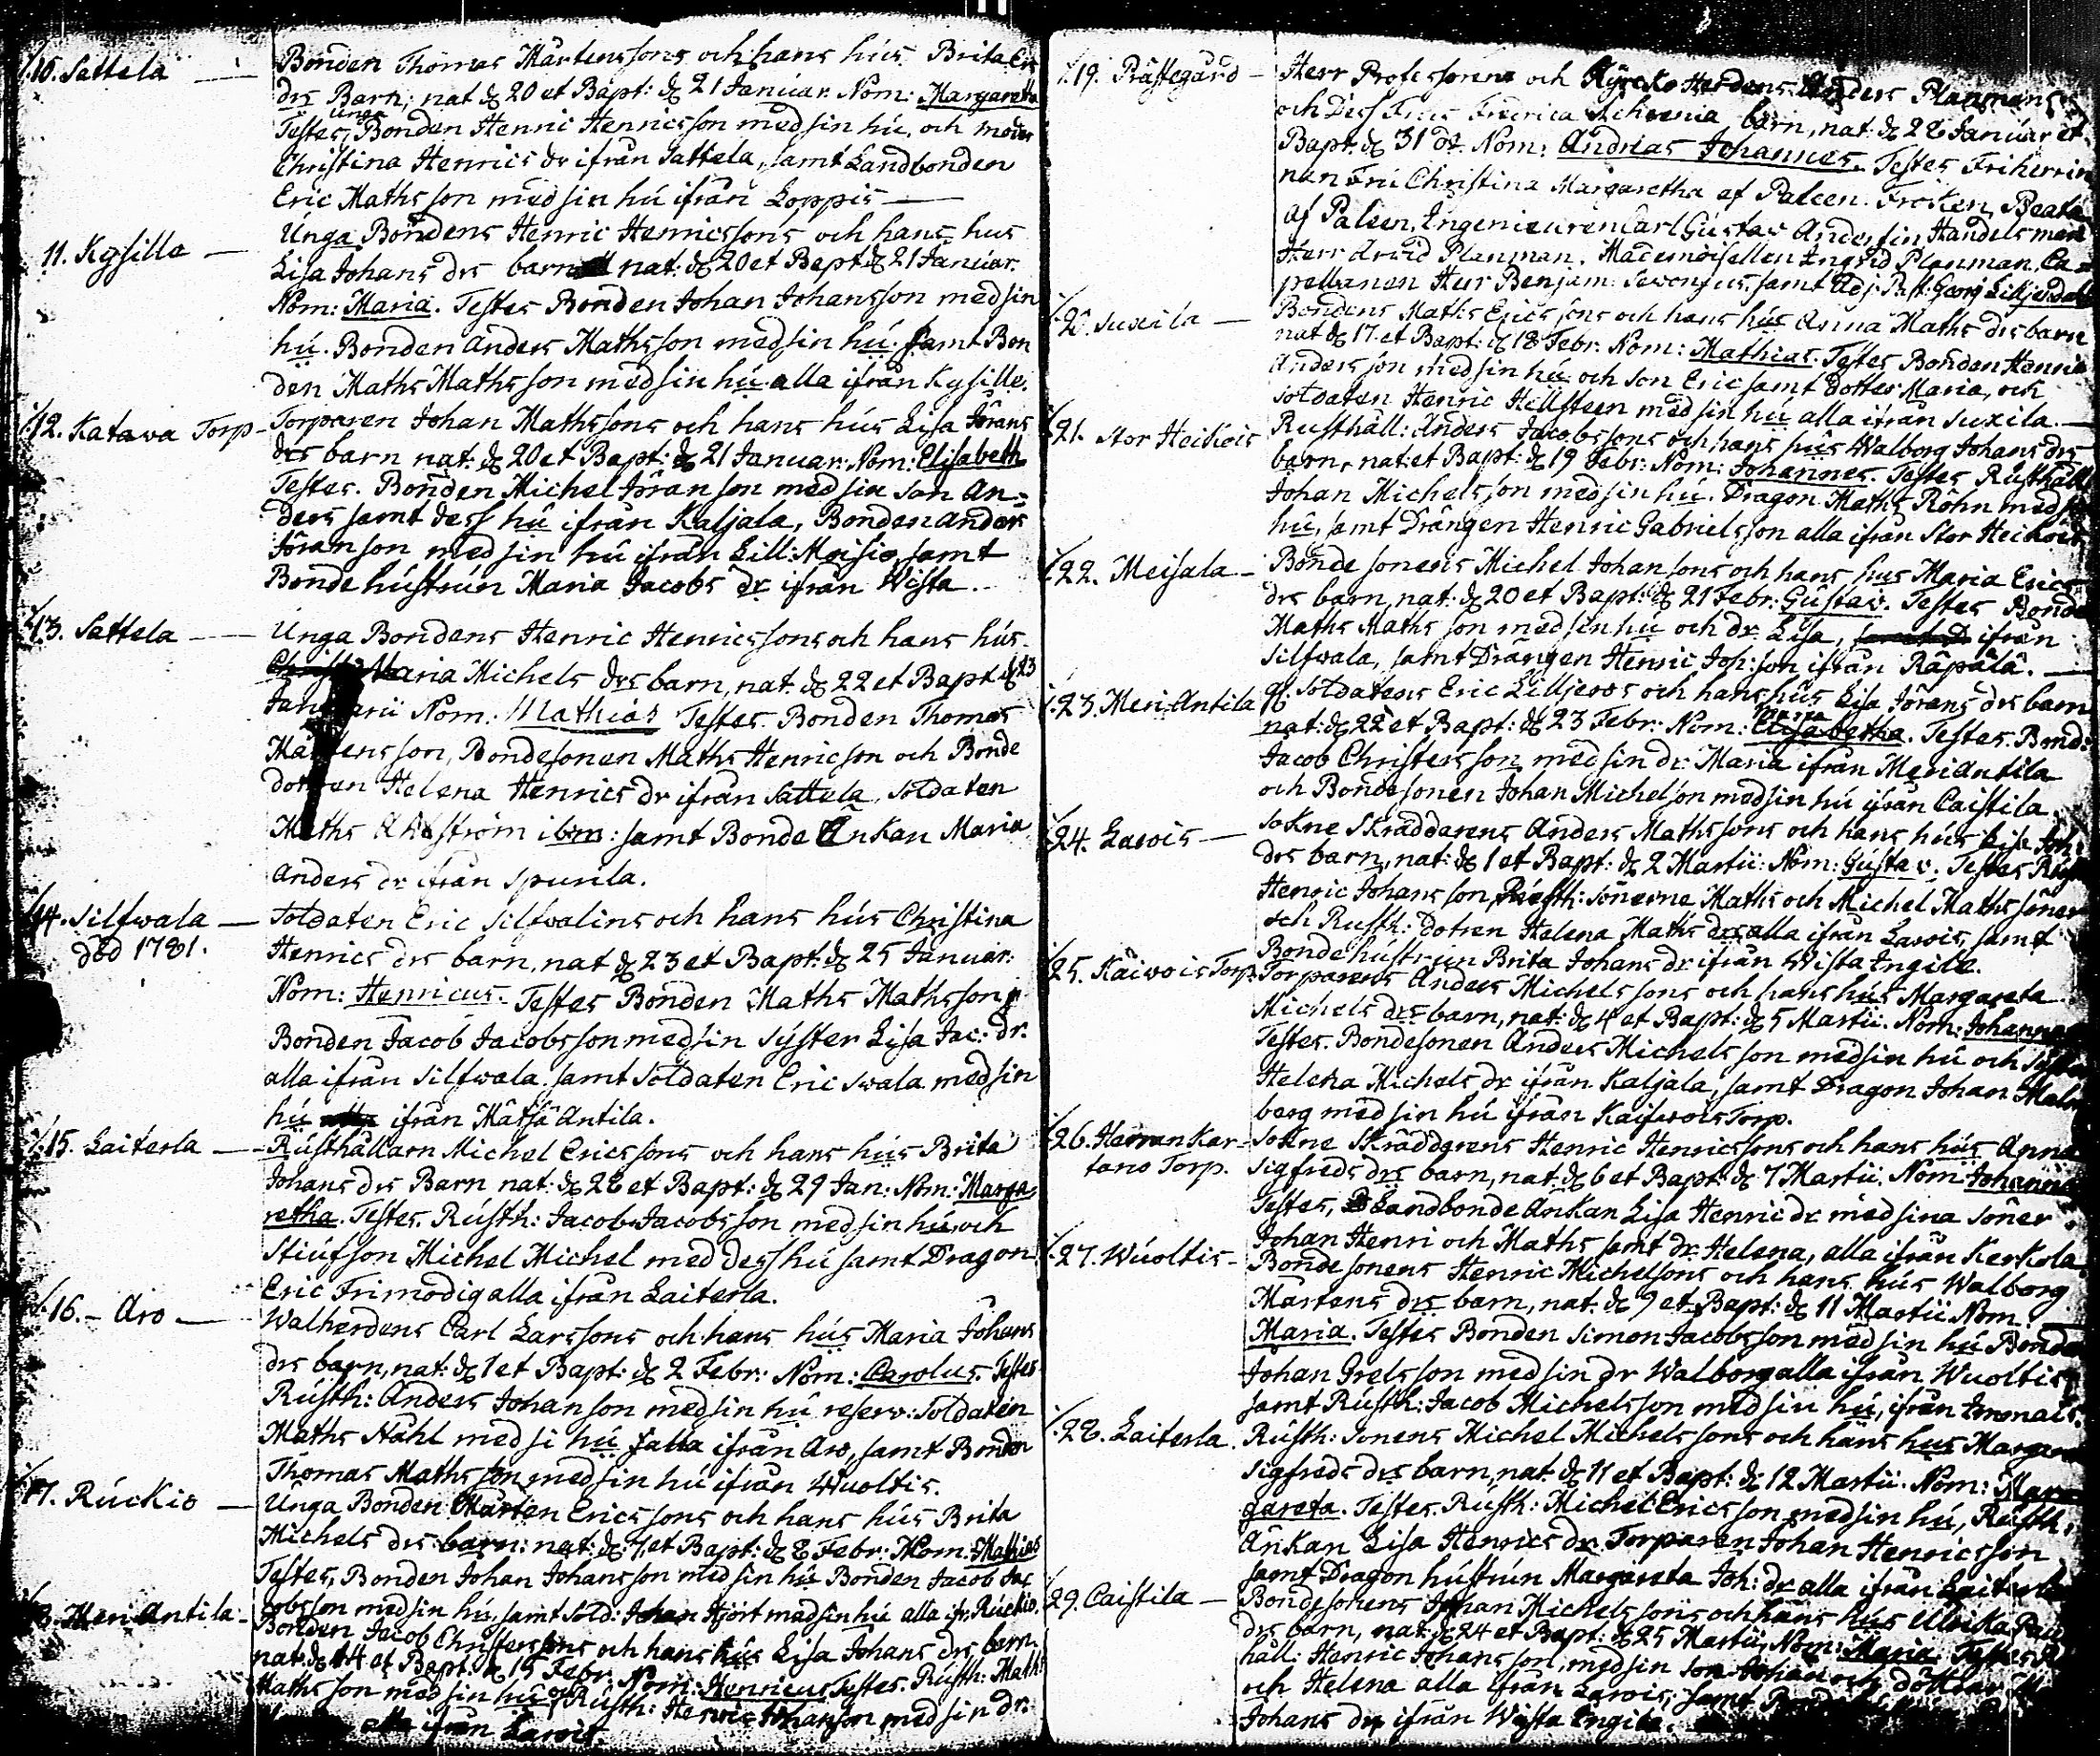 10. Sattela — Bonden Thomas Mårtenssons och hans hus Brita Er
drs Barn, nat d 20 et Bapt: d 21 Januar. Nom: Margareta
Testes, Unga Bonden Henric Henricsson med sin hu, och
Christina Henrics dr ifrån Sattela, samt Landbonden
Eric Mathsson med sin hu ifrån Loppis —
11. Kysille — Unga Bondens Henric Henricssons och hans hus
Lisa Johans drs barn nat: d 20 et Bapt d 21 Januar.
Nom: Maria. Testes Bonden Johan Johansson med sin
hú. Bonden Anders Mathsson med sin hú. samt Bon
den Maths Mathsson med sin hú alla ifrån Kysille.
12. Katava Torp - Torparen Johan Mathssons och hans hús Lisa Jörans
drs barn nat: d 20 et Bapt: d 21 Januar: Nom: Elisabeth
Testes. Bonden Michel Jöranson med sin son An-
ders samt dess hú ifrån Kaljala, Bonden Anders
Jöranson med sin hú ifrån Lill: Moisio, samt
Bonde hústrun Maria Jacobs dr ifrån Wista.
13. Sattela — Unga Bondens Henric Henricssons och hans hús
Maria Michels drs barn, nat: d 22 et Bapt d 23
Januarii Nom: Mathias Testes. Bonden Thomas
Mårtensson, Bondesonen Maths Henricson och Bonde
dottren Helena Henrics dr ifrån Sattela, Soldaten
Maths Ahlström ibm: samt Bonde Änkan Maria
Anders dr ifrån Spurila.
14. Silfwala — Soldaten Eric Silfwalins och hans hús Christina
död 1781. Henrics drs barn, nat d 23 et Bapt: d 25 Januar:
Nom: Henricus. Testes Bonden Maths Mathsson,
Bonden Jacob Jacobsson med sin syster Lisa Jac: dr.
alla ifrån Silfwala. samt Soldaten Eric Swala med sin
hú ifrån Mätsä Antila.
15. Laiterla — Rústhållarn Michel Ericssons och hans hús Brita
Johans drs Barn nat: d 28 et Bapt: d 29 Jan: Nom: Marga
retha. Testes. Rústh: Jacob Jacobsson med sin hú och
Stiúfson Michel Michel med dess hú samt Dragon
Eric Frimodig alla ifrån Laiterla.
16. - Aro — Walherdens Carl Larssons och hans hús Maria Johans
drs barn, nat: d 1 et Bapt: d 2 Febr: Nom: Carolus. Testes
Rústh: Anders Johanson med sin hú reserv: Soldaten
Maths Ståhl med si hú alla ifrån Aro, samt Bonden
Thomas Mathsson med sin hú ifrån Wuoltis.
17. Rúckio — Unga Bonden Mårten Ericssons och hans hús Brita
Michels drs barn: nat: d 7 et Bapt: d 8 Febr: Nom: Mathias
Testes, Bonden Johan Johansson med sin hú Bonden Jacob Jac
obsson med sin hú, samt Sold: Johan Hjort med sin hú alla ifr. Rúckio.
18. Meri Antila - Bonden Jacob Christerssons och hans hús Lisa Johans drs barn
nat: d 14 et Bapt: d 15 Febr. Nom: Henricus Testes. Rústh: Maths
Mathsson med sin hú och Rústh: Henric Johanson med sin dr.
alla ifrån Lawis.
19. Prästegård — Herr Professorens och Kyrcko Herdens Anders Planmans
och Dess Frus Fredrica barn, nat: d 28 Januar et
Bapt. d 31 do. Nom: Andreas Johannes. Testes Friherrin
nan Fru Christina Margaretha af Paleen. Fröken Beata
af Palsen, Ingenieuren Carl Gustav Andersin, Handelsman
Herr Arvid Planman. Mademoisellen Ingrid Planman, Ca=
pellanen Herr Benjam: samt Adj: Past: Georg
20. Suxila — Bondens Maths Ericssons och hans hús Anna Maths drs barn
nat d 17 et Bapt: d 18 Febr. Nom: Mathias. Testes Bonden Henric
Andersson med sin hú och son Eric samt dotter Maria, och
Soldaten Henric Hellsteen med sin hú alla ifrån Suxila.
21. Stor Heikois Rusthåll: Anders Jacobssons och hans hús Walborg Johans drs
barn, nat: et Bapt: d 19 Febr: Nom: Johannes. Testes Rústhåll
Johan Michelsson med sin hú. Dragon Maths Röhn med sin
hú, samt Drängen Henric Gabrielsson alla ifrån Stor Heikois.
22. Meisala — Bonde sonens Michel Johansons och hans hus Maria Erics
drs barn, nat: d 20 et Bapt: d 21 Febr: Gústav. Testes Bonden
Maths Maths son med sin hú och dr Lisa, ifrån
Silfwala, samt Drängen Henric Joh: son ifrån Räpälä. —
23. Meri-Antila Soldatens Eric Lilljeroos och hans hús Lisa Jörans drs barn
nat: d 22 et Bapt: d 23 Febr: Nom: Elisabetha. Testes. Bond:
Jacob Christersson med sin dr: Maria ifrån Meri Antila
och Bondesonen Johan Michelson med sin hú ifrån Caistila.
24. Lawis — Sokne Skräddarens Anders Mathssons och hans hús Lisa Joh:
drs barn, nat: d 1 et Bapt: d 2 Martii: Nom: Gústav. Testes Rúst
Henric Johansson, Rústh: sönerne Maths och Michel Mathssöner
och Rusth: dotren Helena Maths dr alla ifrån Lawis, samt
Bonde hústrun Brita Johans dr ifrån Wista Ingile.
25. Kaiwois Torp. Torparens Anders Michelssons och hans hús Margareta
Michels drs barn, nat: d 4 et Bapt: d 5 Martii. Nom: Johannes
Testes. Bondesonen Anders Michelsson med sin hú och syster
Helena Michels dr ifrån Kaljala, samt Dragon Johan Malm
berg med sin hú ifrån Kaifwois Torp.
26. Herran Kar- Sokne Skräddarens Henric Henricssons och hans hús Anna
tano Torp. Sigfreds drs barn, nat: d 6 et Bapt: d 7 Martii. Nom: Johannes
Testes, Landbonde Änkan Lisa Henric dr med sina söner
Johan Henri och Maths samt dr: Helena, alla ifrån Kerkola.
27. Wúoltis - Bonde sonens Henric Michelsons och hans hús Walborg
Mårtens drs barn, nat. d 9 et Bapt: d 11 Martii Nom.
Maria. Testes Bonden Simon Jacobsson med sin hú Bonden
Johan Grelsson med sin dr Walborg alla ifrån Wuoltis
samt Rústh: Jacob Michelsson med sin hú, ifrån
28. Laiterla. Rústh: sonens Michel Michelssons och hans hus Margareta
Sigfreds drs barn, nat: d 11 et Bapt: d 12 Martii. Nom: Mar
gareta. Testes. Rústh: Michel Ericsson med sin hú, Rústh:
Änkan Lisa Henrics dr Torparen Johan Henricsson
samt Dragon hústrún Margareta Joh: dr alla ifrån Laiterla
29. Caistila — Bondesonens Johan Michelssons och hans hús Ulrika
drs barn, nat: d 24 et Bapt: d 25 Martii, Nom: Maria. Testes
håll: Henric Johansson, med sin son Johan och döttrar
och Helena alla ifrån Lawis, samt
Johans dr ifrån Wista Ingile.